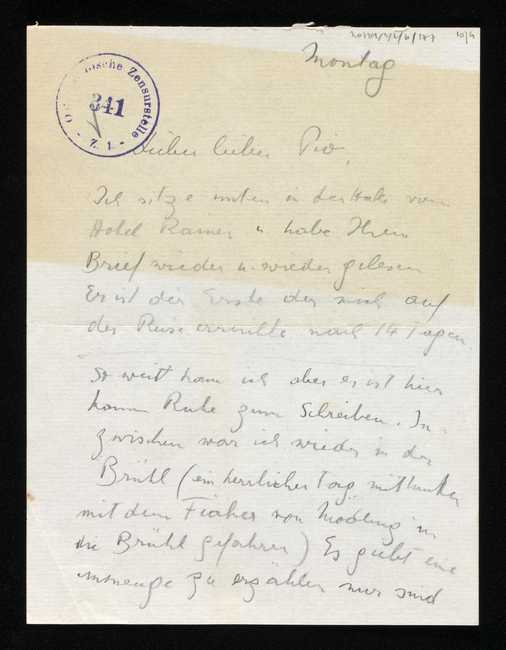 Montag
Österreichische Zensurstelle
341
Z. 1.
Lieber lieber Pio,
Ich sitze unten in der Halle vom
Hotel Rainer u habe Ihren
Brief wieder u. wieder gelesen
Er ist der Erste der mich auf
der Reise erreichte nach 14 Tagen.
So weit kam ich aber es ist hier
kaum Ruhe zum Schreiben. In-
zwischen war ich wieder in der
Brühl (ein herrlicher Tag mit
mit dem Fiaker von Mödling in
die Brühl gefahren) Es giebt eine
unmenge zu erzählen nur sind